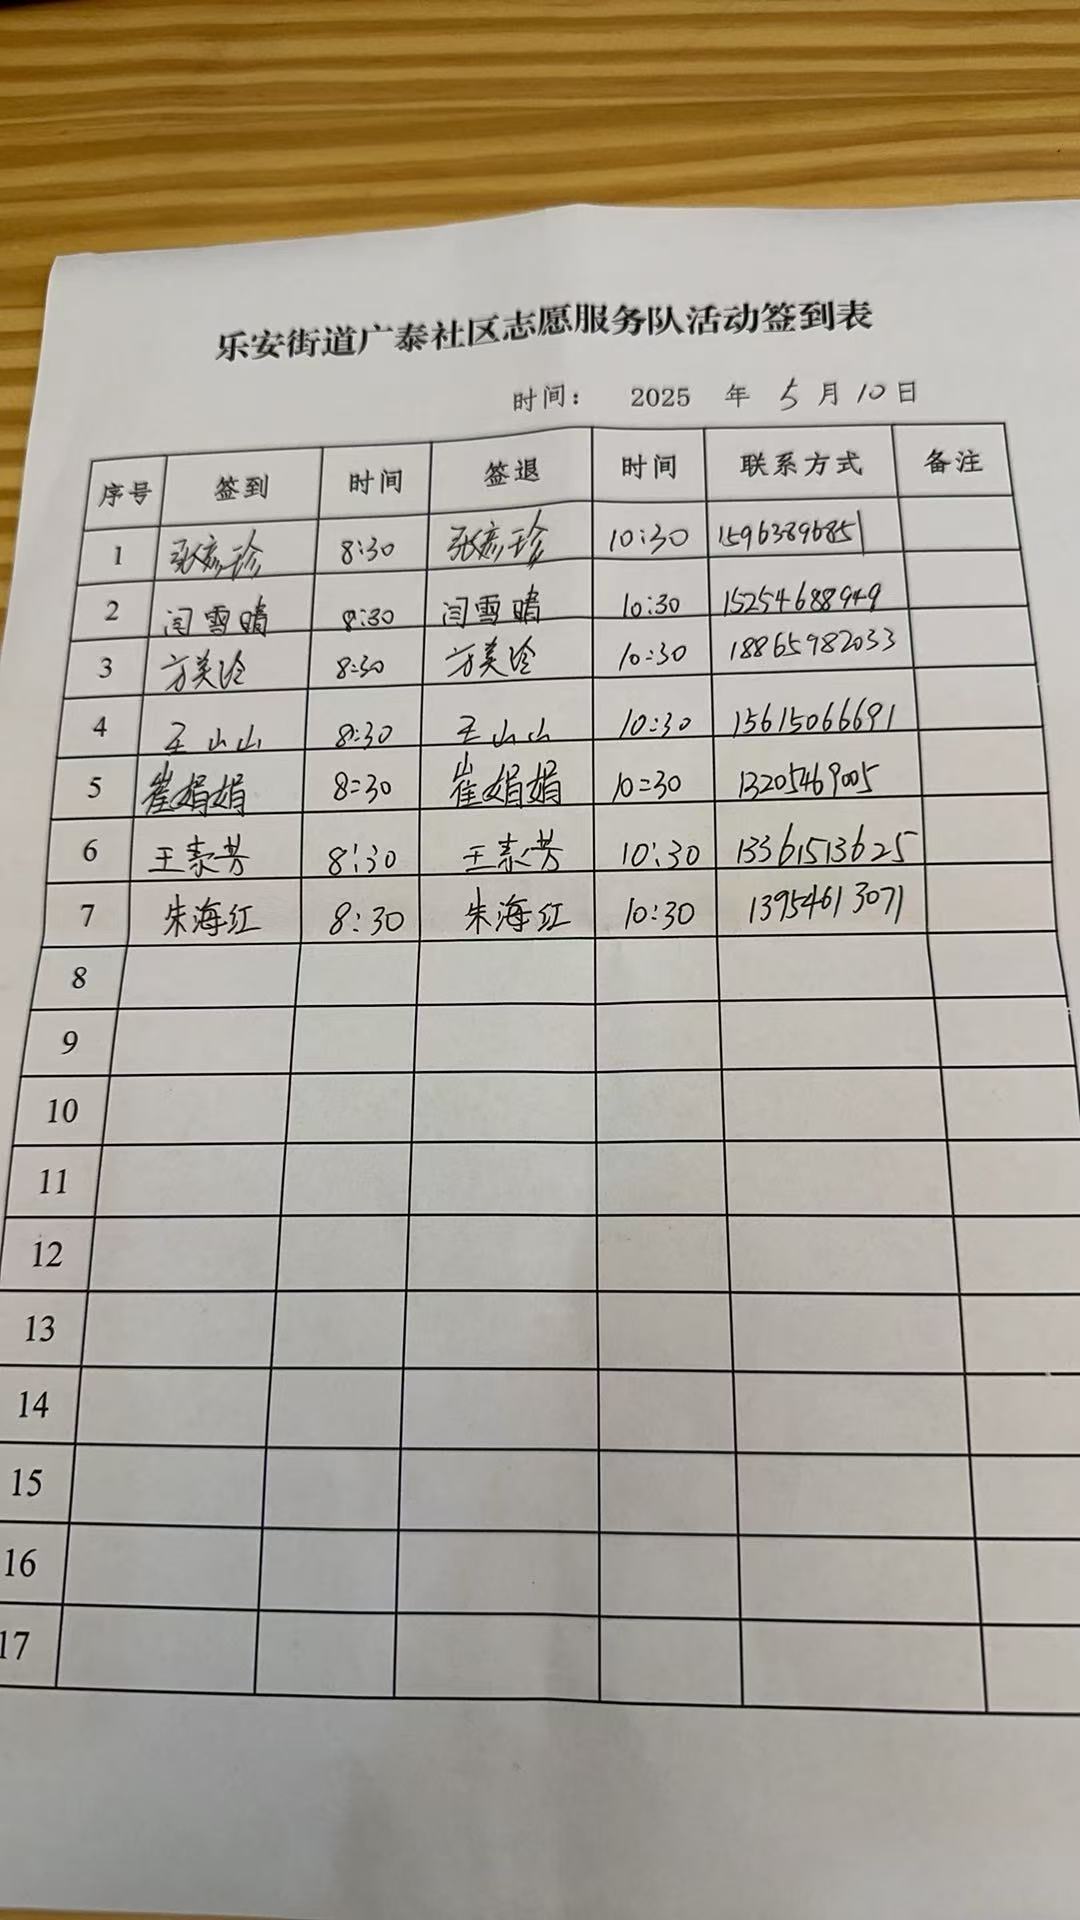 乐安街道广泰社区志愿服务队活动签到表
时间： 2025 年 5 月 10 日
序号 签到 时间 签退 时间 联系方式 备注
1 张彦珍 8:30 张彦珍 10:30 15963896851
2 闫雪晴 8:30 闫雪晴 10:30 15254688949
3 方美玲 8:30 方美玲 10:30 18865982033
4 王山山 8:30 王山山 10:30 15615066691
5 崔娟娟 8:30 崔娟娟 10:30 13205469005
6 王素芳 8:30 王素芳 10:30 13361513625
7 朱海红 8:30 朱海红 10:30 13954613071
8
9
10
11
12
13
14
15
16
17